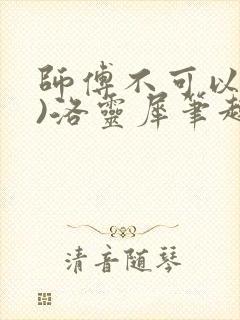 師傅不可以
)洛靈犀筆趣
清音随琴